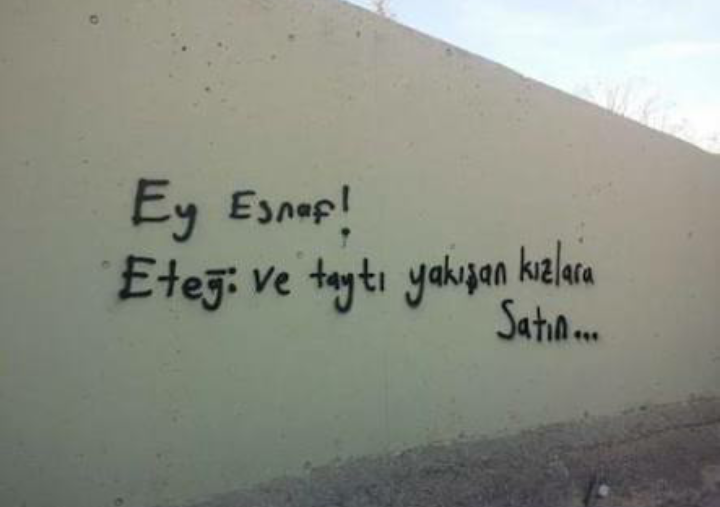 Ey Esnaf!
Eteği ve taytı yakışan kızlara
Satın...